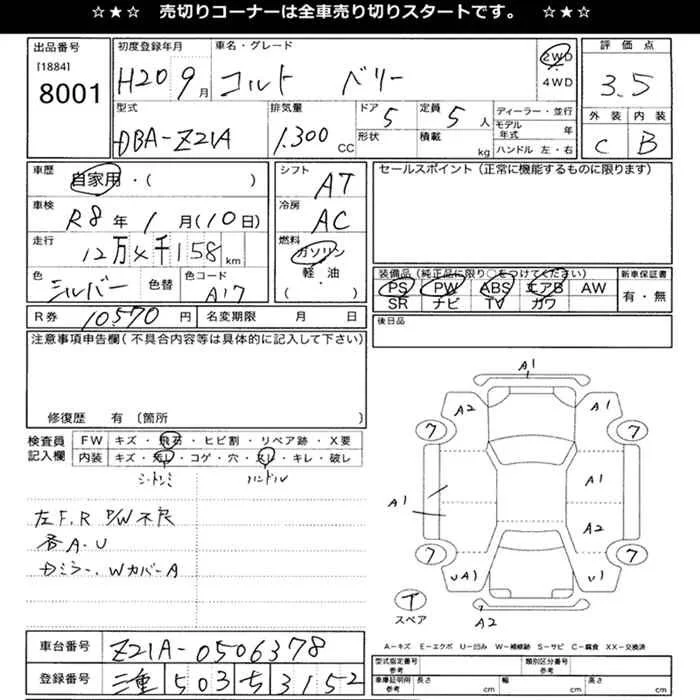 ☆★☆ 売切りコーナーは全車売り切りスタートです。 ☆★☆
出品番号 [1884] 8001
初度登録年月 H20 9月
車名・グレード コルト ベリー
2WD 4WD
評価点 3.5
外装 C 内装 B
型式 DBA-Z21A
排気量 1.300 CC
ドア 5 形状
定員 5人 積載 kg
ディーラー・並行
モデル年式 年
ハンドル 左・右
車歴 自家用・( )
車検 R8年 1月(10日)
走行 12万4千158km
色 シルバー 色替 色コード A17
シフト AT
冷房 AC
燃料 ガソリン 軽・油 ・( )
セールスポイント(正常に機能するものに限ります)
装備品(純正品に限り○をつけてください)
PS PW ABS エアB AW
SR ナビ TV カワ
新車保証書 有・無
R券 10570円 名変期限 月 日
後日品
注意事項申告欄(不具合内容等は具体的に記入して下さい)
修復歴 有 〔箇所 〕
検査員記入欄
FW キズ・飛石・ヒビ割・リペア跡・X要
内装 キズ・汚レ・コゲ・穴・スレ・キレ・破レ
ハンドル
左F.R P/W不良
各A.U
Dミラー、WカバーA
A1
A2 A1
7 7
A1 A1
A2
7 7
UA1 U1
A2
スペア
A-キズ E-エクボ U-凹み W-補修跡 S-サビ C-腐食 XX-交換済
車台番号 Z21A-0506378
登録番号 三重 503 ち 3152
型式指定番号 参考 類別区分番号 参考
車庫証明用 参考 長さ cm 幅 cm 高さ cm